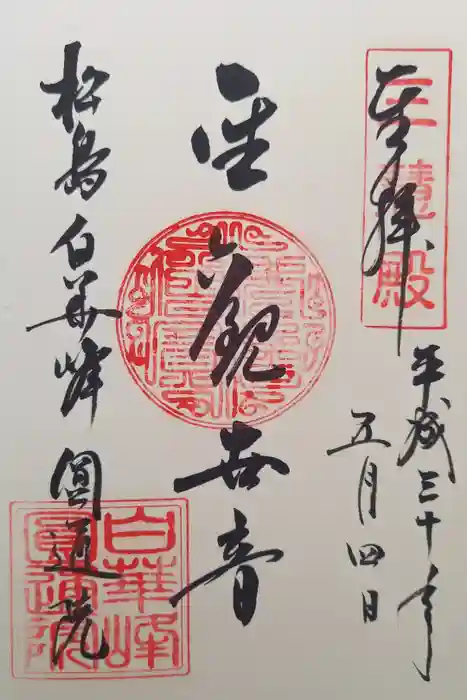 三慧殿
奉拝
平成三十年
五月四日
聖観世音
松島白華峰 圓通院
白華峰
圓通院